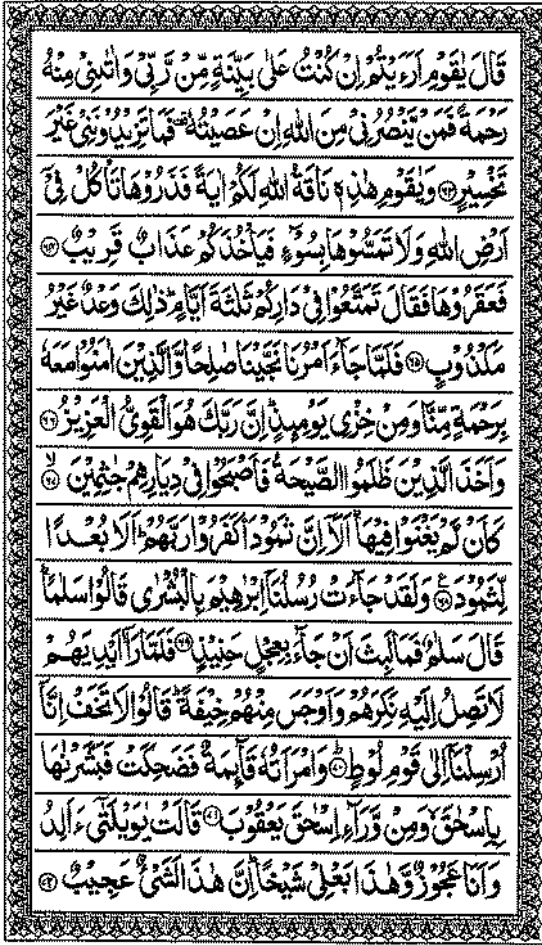 قَالَ يٰقَوْمِ اَرَءَيْتُمْ اِنْ كُنْتُ عَلٰى بَيِّنَةٍ مِّنْ رَّبِّىْ وَاٰتٰىنِىْ مِنْهُ
رَحْمَةً فَمَنْ يَّنْصُرُنِىْ مِنَ اللّٰهِ اِنْ عَصَيْتُهٗ ۟ فَمَا تَزِيْدُوْنَنِىْ غَيْرَ
تَخْسِيْرٍ ﴿۶۳﴾ وَيٰقَوْمِ هٰذِهٖ نَاقَةُ اللّٰهِ لَكُمْ اٰيَةً فَذَرُوْهَا تَاْكُلْ فِىْۤ
اَرْضِ اللّٰهِ وَلَا تَمَسُّوْهَا بِسُوْٓءٍ فَيَاْخُذَكُمْ عَذَابٌ قَرِيْبٌ ﴿۶۴﴾
فَعَقَرُوْهَا فَقَالَ تَمَتَّعُوْا فِىْ دَارِكُمْ ثَلٰثَةَ اَيَّامٍ ؕ ذٰلِكَ وَعْدٌ غَيْرُ
مَكْذُوْبٍ ﴿۶۵﴾ فَلَمَّا جَآءَ اَمْرُنَا نَجَّيْنَا صٰلِحًا وَّالَّذِيْنَ اٰمَنُوْا مَعَهٗ
بِرَحْمَةٍ مِّنَّا وَمِنْ خِزْىِ يَوْمِئِذٍ ؕ اِنَّ رَبَّكَ هُوَ الْقَوِىُّ الْعَزِيْزُ ﴿۶۶﴾
وَاَخَذَ الَّذِيْنَ ظَلَمُوا الصَّيْحَةُ فَاَصْبَحُوْا فِىْ دِيَارِهِمْ جٰثِمِيْنَ ۙ﴿۶۷﴾
كَاَنْ لَّمْ يَغْنَوْا فِيْهَا ؕ اَلَاۤ اِنَّ ثَمُوْدَا۟ كَفَرُوْا رَبَّهُمْ ؕ اَلَا بُعْدًا
لِّثَمُوْدَ ﴿۶۸﴾ وَلَقَدْ جَآءَتْ رُسُلُنَاۤ اِبْرٰهِيْمَ بِالْبُشْرٰى قَالُوْا سَلٰمًا ؕ
قَالَ سَلٰمٌ فَمَا لَبِثَ اَنْ جَآءَ بِعِجْلٍ حَنِيْذٍ ﴿۶۹﴾ فَلَمَّا رَاٰۤ اَيْدِيَهُمْ
لَا تَصِلُ اِلَيْهِ نَكِرَهُمْ وَاَوْجَسَ مِنْهُمْ خِيْفَةً ؕ قَالُوْا لَا تَخَفْ اِنَّاۤ
اُرْسِلْنَاۤ اِلٰى قَوْمِ لُوْطٍ ؕ﴿۷۰﴾ وَامْرَاَتُهٗ قَآئِمَةٌ فَضَحِكَتْ فَبَشَّرْنٰهَا
بِاِسْحٰقَ ۙ وَمِنْ وَّرَآءِ اِسْحٰقَ يَعْقُوْبَ ﴿۷۱﴾ قَالَتْ يٰوَيْلَتٰٓى ءَاَلِدُ
وَاَنَا عَجُوْزٌ وَّهٰذَا بَعْلِىْ شَيْخًا ؕ اِنَّ هٰذَا لَشَىْءٌ عَجِيْبٌ ﴿۷۲﴾